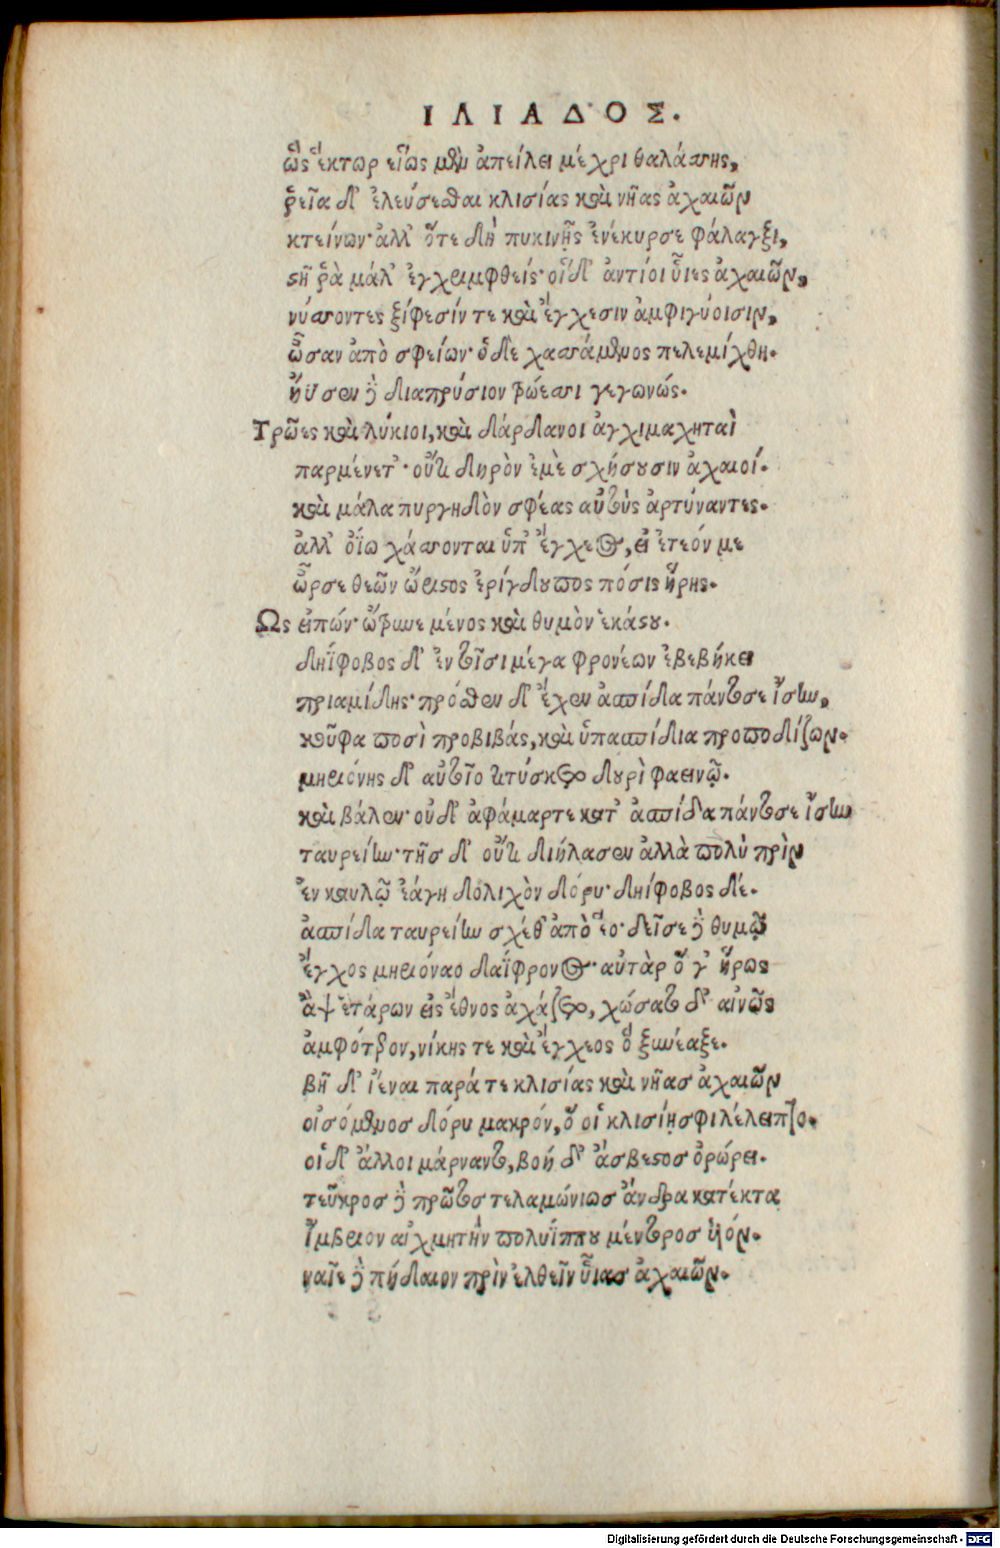 ΙΛΙΑΔΟΣ.
ὣς ἕκτωρ εἵως μὲν ἀπείλει μέχρι θαλάσσης,
ῥεῖα δ' ἐλεύσεσθαι κλισίας καὶ νῆας ἀχαιῶν
κτείνων· ἀλλ' ὅτε δὴ πυκινῇς ἐνέκυρσε φάλαγξι,
στῆ ῥὰ μάλ' ἐγχειμφθείς· οἱ δ' ἀντίοι ὗιες ἀχαιῶν,
νύσσοντες ξίφεσίν τε καὶ ἔγχεσιν ἀμφιγύοισιν,
ὦσαν ἀπὸ σφείων· ὁ δὲ χασσάμενος πελεμίχθη.
ἤϋσεν δὲ διαπρύσιον τρώεσσι γεγωνώς.
Τρῶες καὶ λύκιοι, καὶ δάρδανοι ἀγχιμαχηταὶ
παρμένετ'· οὔτι δηρὸν ἐμὲ σχήσουσιν ἀχαιοί.
καὶ μάλα πυργηδὸν σφέας αὐτοὺς ἀρτύναντες.
ἀλλ' ὀΐω χάσσονται ὑπ' ἔγχεος, εἰ ἐτεόν με
ὦρσε θεῶν ὤριστος ἐρίγδουπος πόσις ἥρης.
Ὣς εἰπών· ὤτρυνε μένος καὶ θυμὸν ἑκάστου.
δηΐφοβος δ' ἐν τοῖσι μέγα φρονέων ἐβεβήκει
πριαμίδης· πρόσθεν δ' ἔχεν ἀσπίδα πάντοσε ἴσην,
κοῦφα ποσὶ προβιβάς, καὶ ὑπασπίδια προποδίζων.
μηριόνης δ' αὐτοῖο τιτύσκετο δουρὶ φαεινῷ.
καὶ βάλεν· οὐδ' ἀφάμαρτε κατ' ἀσπίδα πάντοσε ἴσην
ταυρείην· τῆς δ' οὔτι διήλασεν ἀλλὰ πολὺ πρὶν
ἐν καυλῷ ἐάγη δολιχὸν δόρυ· δηίφοβος δέ.
ἀσπίδα ταυρείην σχέθ' ἀπὸ ἕο· δεῖσε δὲ θυμῷ
ἔγχος μηριόναο δαΐφρονος· αὐτὰρ ὅ γ' ἥρως
ἂψ ἑτάρων εἰς ἔθνος ἐχάζετο, χώσατο δ' αἰνῶς
ἀμφότερον, νίκης τε καὶ ἔγχεος ὃ ξυνέαξε.
βῆ δ' ἰέναι παρά τε κλισίας καὶ νῆας ἀχαιῶν
οἰσόμενος δόρυ μακρόν, ὅ οἱ κλισίηφι λέλειπτο.
οἱ δ' ἄλλοι μάρναντο, βοή δ' ἄσβεστος ὀρώρει.
τεῦκρος δὲ πρῶτος τελαμώνιος ἄνδρα κατέκτα
ἴμβριον αἰχμητὴν πολυΐππου μέντορος ὑιόν.
ναῖε δὲ πήδαιον πρὶν ἐλθεῖν ὗιας ἀχαιῶν.
Digitalisierung gefördert durch die Deutsche Forschungsgemeinschaft - DFG